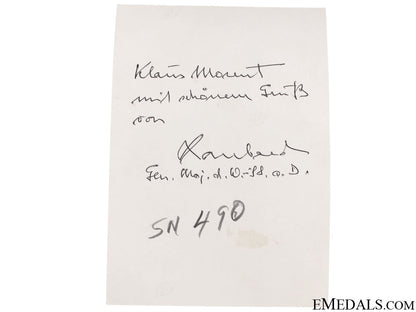 Klaus
mit schönem Gruß
von
Gen. Maj. d. W.-SS. a. D.
SN 490
EMEDALS.COM